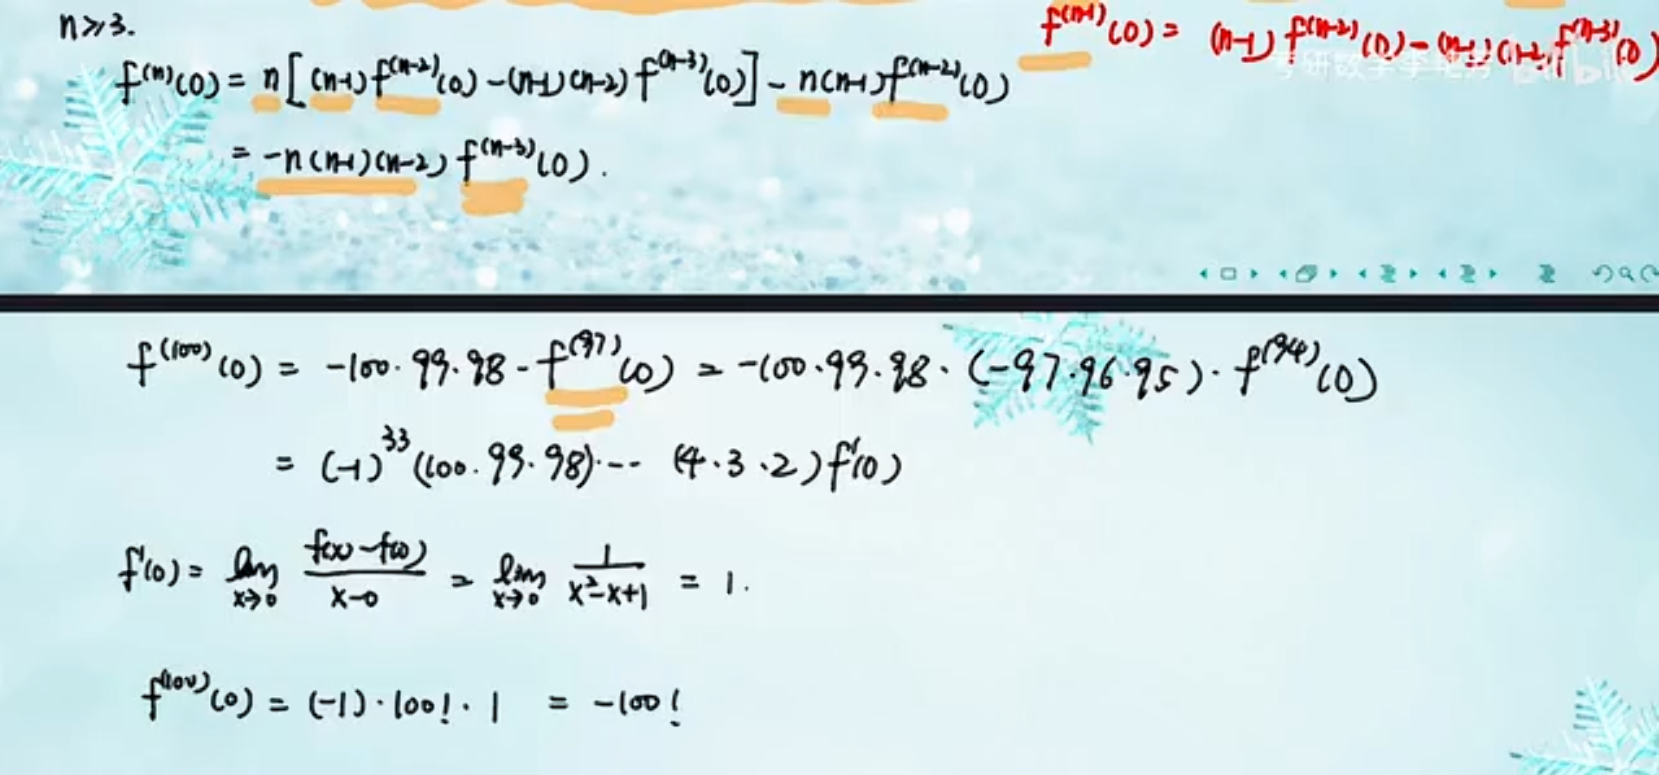 n≥3.
f^(n-1)(0) = (n-1)f^(n-2)(0)-(n-1)(n-2)f^(n-3)(0)
f^(n)(0) = n[(n-1)f^(n-2)(0)-(n-1)(n-2)f^(n-3)(0)]-n(n-1)f^(n-2)(0)
考研数学李艳芳 bilibili
= -n(n-1)(n-2)f^(n-3)(0).
f^(100)(0) = -100·99·98-f^(97)(0) = -100·99·98·(-97·96·95)·f^(94)(0)
= (-1)^33(100·99·98)···(4·3·2)f'(0)
f'(0) = lim x→0 (f(x)-f(0))/(x-0) = lim x→0 1/(x²-x+1) = 1.
f^(100)(0) = (-1)·100!·1 = -100!